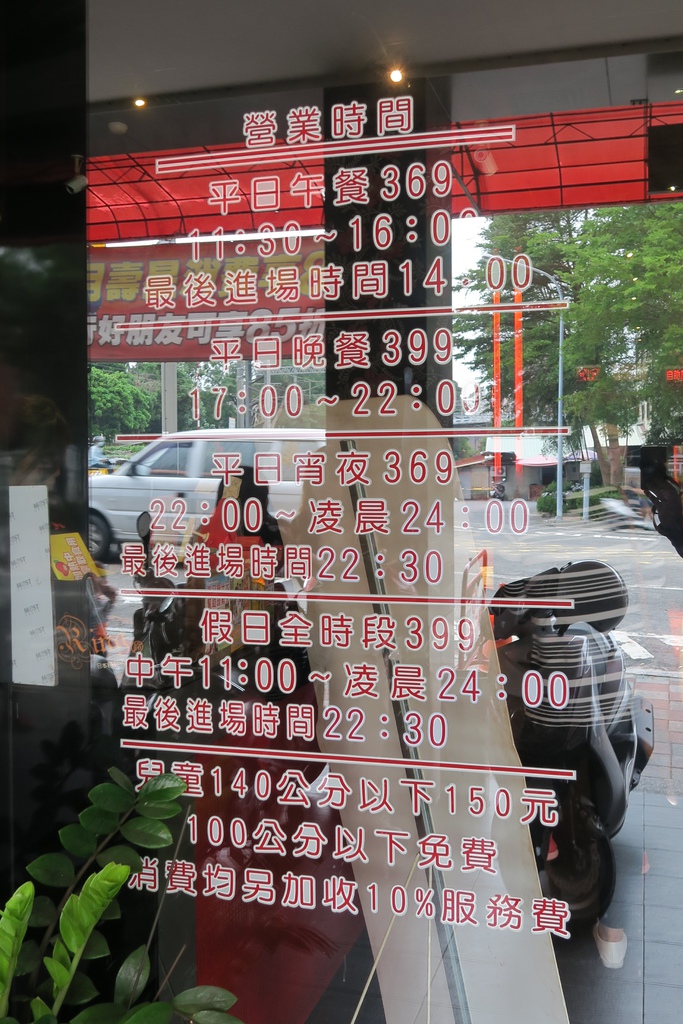 營業時間
平日午餐369
11:30~16:00
最後進場時間14:00
平日晚餐399
17:00~22:00
平日宵夜369
22:00~凌晨24:00
最後進場時間22:30
假日全時段399
中午11:00~凌晨24:00
最後進場時間22:30
兒童140公分以下150元
100公分以下免費
消費均另加收10%服務費